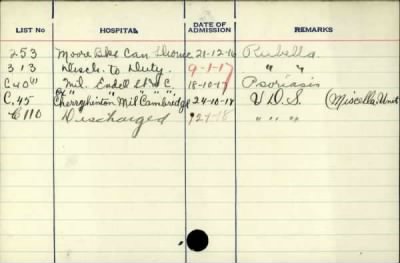 LIST NO HOSPITAL DATE OF ADMISSION REMARKS
253 Moore Bks Can 21-12-16 Rubella
313 Disch. to Duty. 9-1-17 " "
C40 Mil. Endell St W C 18-10-17 Psoriasis
C.45 Cherryhinton Mil Cambridge 24-10-17 V D S (Miscella. Unit
C110 Discharged " " "